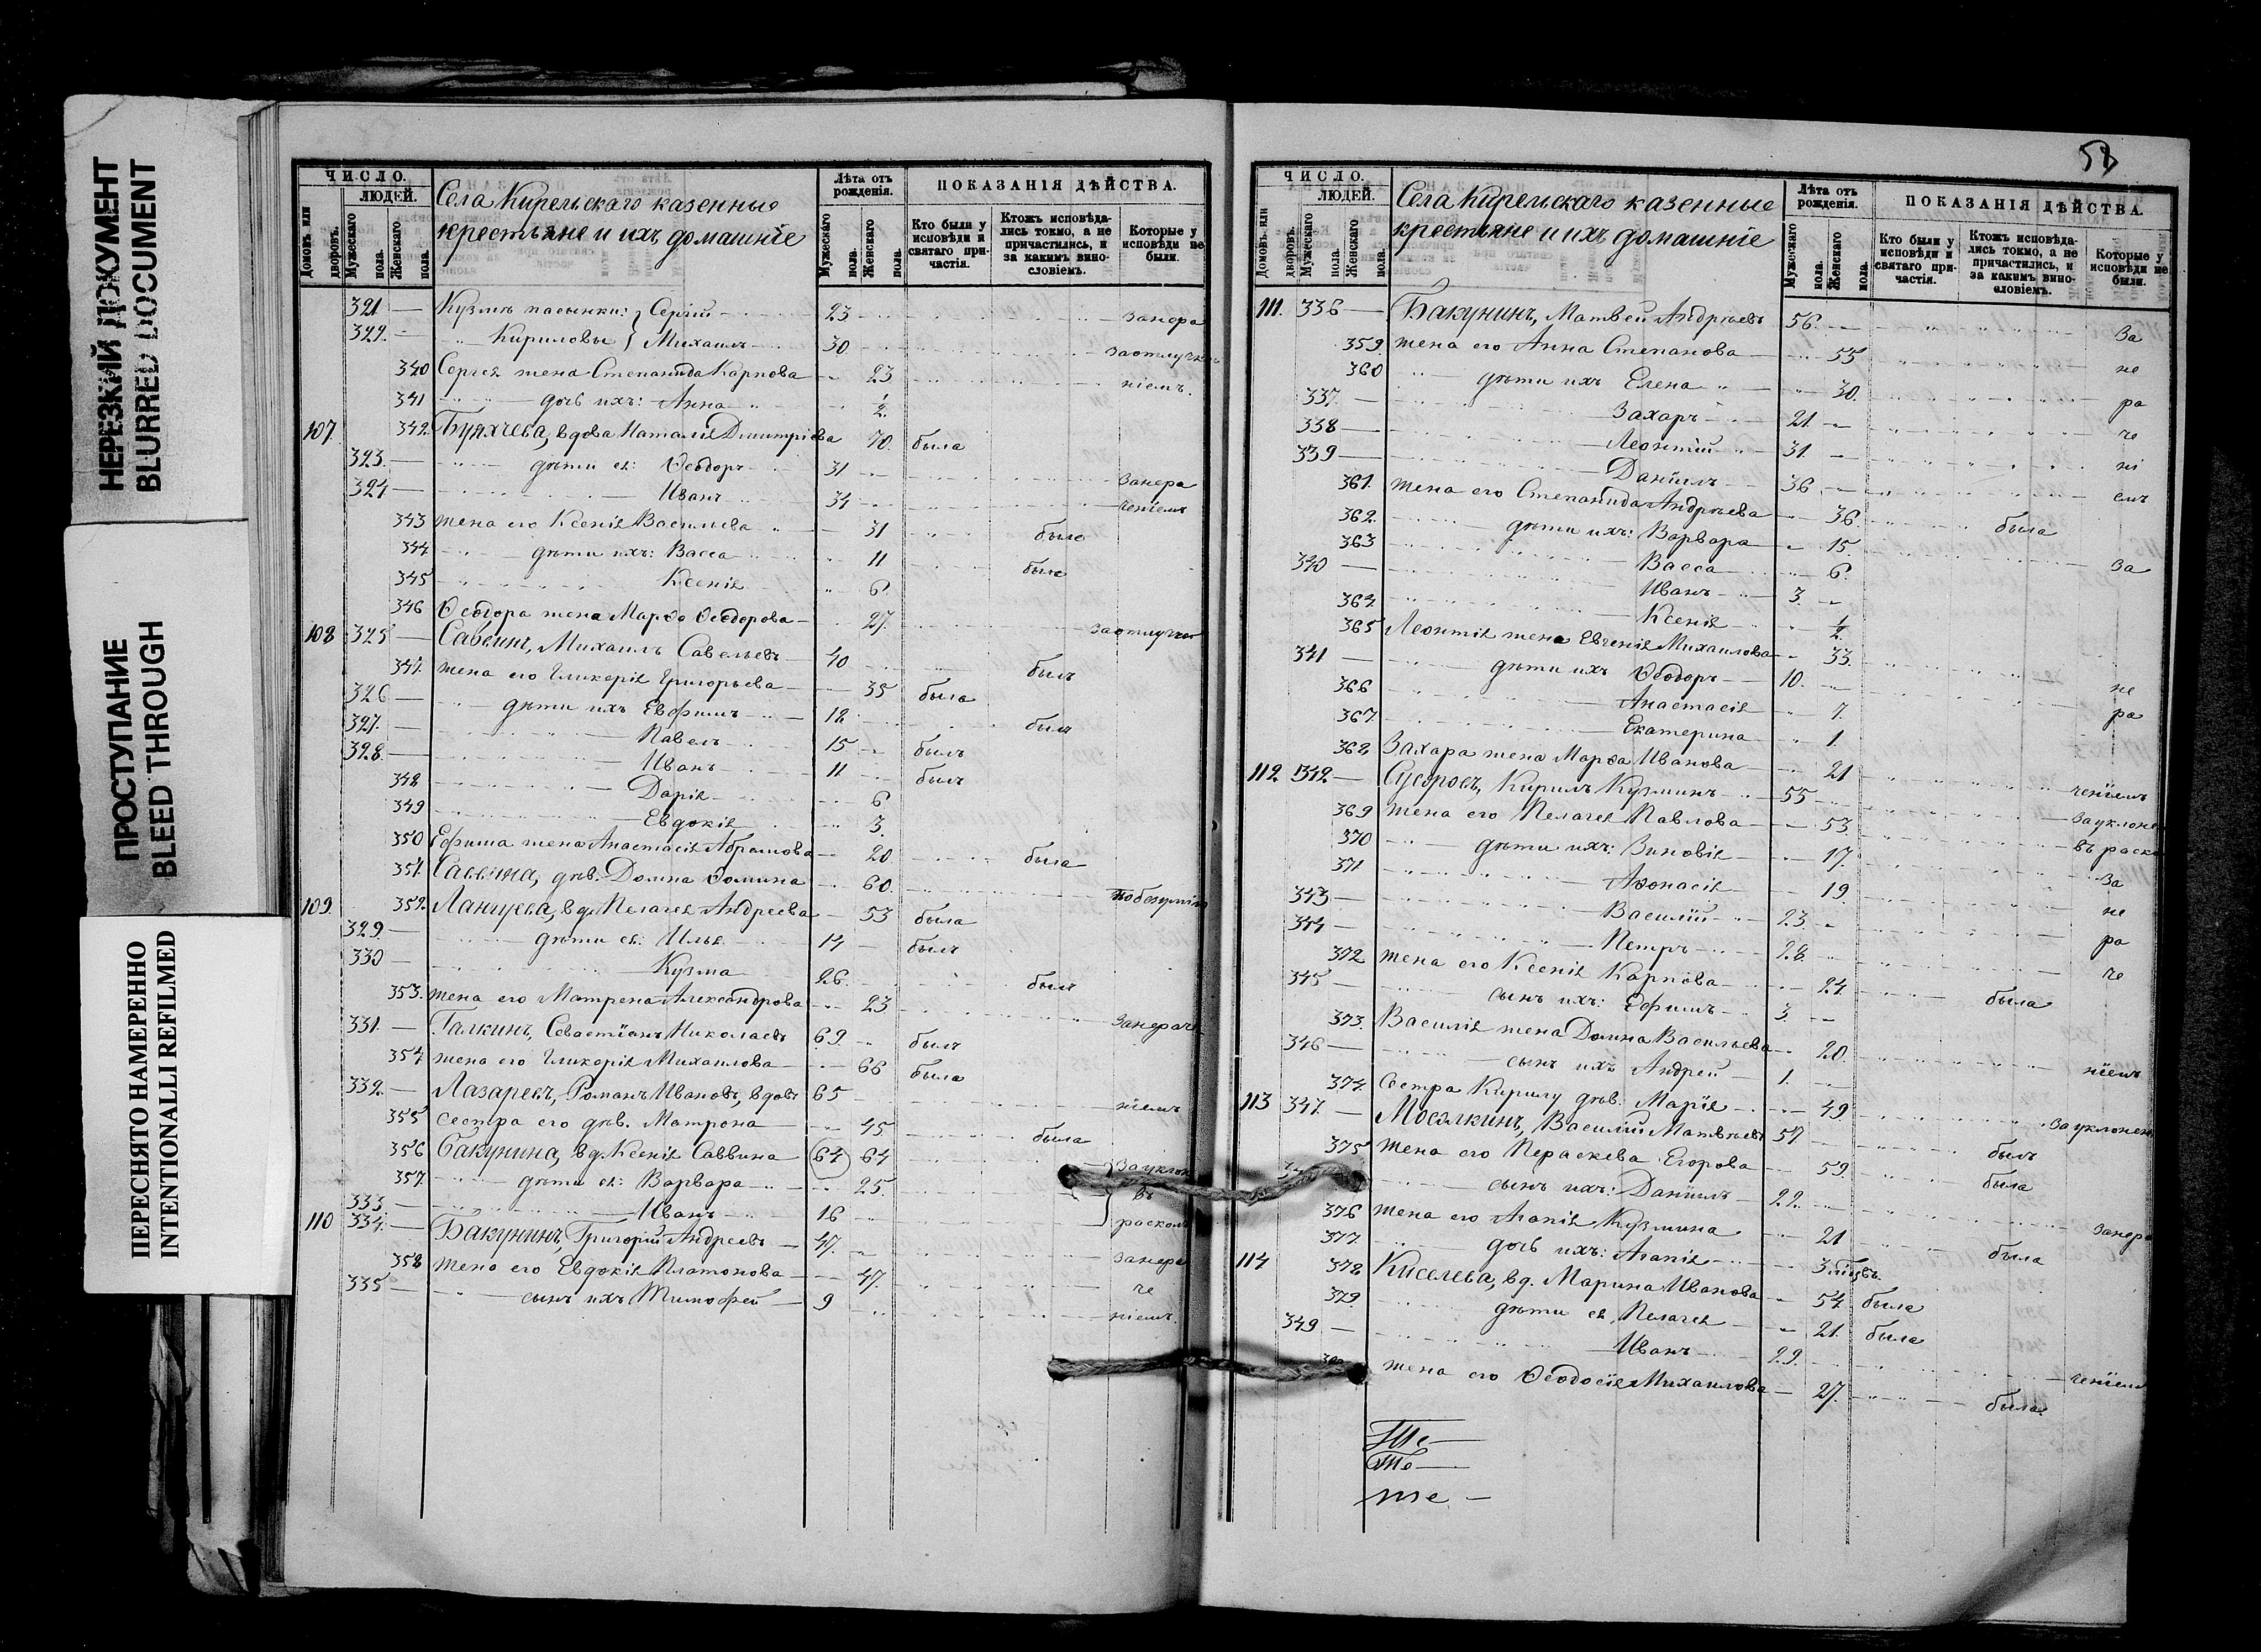 НЕРЕЗКИЙ ДОКУМЕНТ
BLURRED DOCUMENT
ПРОСТУПАНИЕ
BLEED THROUGH
ПЕРЕСНЯТО НАМЕРЕННО
INTENTIONALLI REFILMED
ЧИСЛО.
ЛЮДЕЙ.
Домовъ или дворовъ.
Мужескаго пола.
Женскаго пола.
Села Кирельскаго казенные
крестьяне и ихъ домашніе
Лѣта отъ рожденія.
Мужескаго пола.
Женскаго пола.
ПОКАЗАНІЯ ДѢЙСТВА.
Кто были у исповѣди и святаго причастія.
Ктожъ исповѣдались токмо, а не причастились, и за какимъ винословіемъ.
Которые у исповѣди не были.
321 — Кузмы пасынки: Сергій 23 занера
322. — Кириловы Михаилъ 30 заотлуч
340 Сергея жена Степанида Карпова 23 ніемъ.
341 дочь ихъ: Анна 1/2
107. 342. вдова Наталія Димитріева 70. была
323. — дѣти ея: Ѳеодоръ 31 занера
324 — Иванъ 34 ченіемъ
343 жена его Ксенія Василиева 31 была
344 дѣти ихъ: Васса 11 была
345 Ксенія 6
346 Ѳеодора жена Марѳа Ѳеодорова 27. заотлуч
108 325 — Саввинъ, Михаилъ Савельевъ 40 былъ
347. жена его Гликерія Григорьева 35 была
326 — дѣти ихъ Евфимъ 18 былъ
327. — Павелъ 15 былъ
328. — Иванъ 11 былъ
348 Дарія 6
349 Евдокія 3.
350 Ефима жена Анастасія Абрамова 20 была
351. Саввина, дѣв. Домна Ѳомина 60. по безумію
109. 352. вд. Пелагея Андреева 53 была
329. — дѣти ея: Илья 14 былъ
330 — Кузма 26. былъ
353. жена его Матрена Александрова 23 занера
331. — Галкинъ, Севастіанъ Николаевъ 69 былъ
354 жена его Гликерія Михаилова 66 была
332. — Лазаревъ, Романъ Ивановъ, вдовъ 65 ніемъ
355 сестра его дѣв. Матрона 45 была
356 Бакунина, вд. Ксенія Саввина 64 64 За уклон
357. дѣти ея: Варвара 25. въ
333. — Иванъ 16 раскол
110 334. — Бакунинъ, Григорій Андреевъ 47. занера
358 жена его Евдокія Платонова 47. че
335 — сынъ ихъ Тимофей 9 ніемъ.
ЧИСЛО.
ЛЮДЕЙ.
Домовъ или дворовъ.
Мужескаго пола.
Женскаго пола.
Села Кирельскаго казенные
крестьяне и ихъ домашніе
Лѣта отъ рожденія.
Мужескаго пола.
Женскаго пола.
ПОКАЗАНІЯ ДѢЙСТВА.
Кто были у исповѣди и святаго причастія.
Ктожъ исповѣдались токмо, а не причастились, и за какимъ винословіемъ.
Которые у исповѣди не были.
111. 336 — Бакунинъ, Матвей Андреевъ 56. За
359. жена его Анна Степанова 55 не
360 дѣти ихъ Елена 30. ра
337. — Захаръ 21. че
338 — Леонтій 31. ні
339 — Даніилъ 36 емъ
361. жена его Степанида Андреева 36. была
362. дѣти ихъ: Варвара 15.
363 Васса 6. За
340 — Иванъ 3.
364 Ксенія 1/2.
365 Леонтія жена Евгенія Михаилова 33.
341 — дѣти ихъ Ѳеодоръ 10. не
366 Анастасія 7. ра
367. Екатерина 1.
368 Захара жена Марѳа Иванова 21 ченіемъ
112 342 — Кирилъ Кузминъ 55 За уклоне
369 жена его Пелагея Павлова 53. въ раско
370 дѣти ихъ: Зиновія 17. За
371 Аѳонасія 19 не
343 — Василій 23. ра
344 — Петръ 28. че
372 жена его Ксенія Карпова 24. была
345 — сынъ ихъ: Ефимъ 3.
373. Василія жена Домна Васильева 20. ніемъ
346 — сынъ ихъ Андрей 1.
374. Сестра Кирилу дѣв. Марія 49. За уклонен
113 347. — Василій Матвѣевъ 57 былъ
375 жена его Пераскева Егорова 59. была
сынъ ихъ: Даніилъ 22. занера
376 жена его Агапія Кузмина 21 была
377. дочь ихъ: Агапія 3 мѣцвъ.
114 378 Киселева, вд. Марина Иванова 54 была
379. дѣти ея Пелагея 21. была
349 — Иванъ 29. ченіемъ
жена его Ѳеодосія Михаилова 27. была